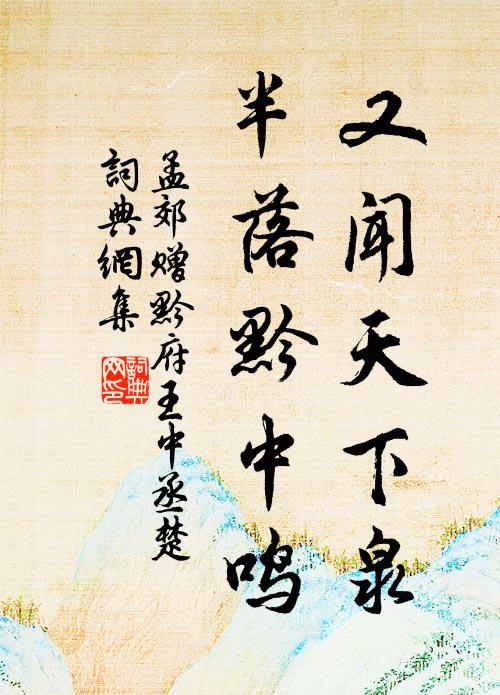 又闻天下泉
半落黔中鸣
孟郊赠黔府王中丞楚
詞典網集
詞典网印